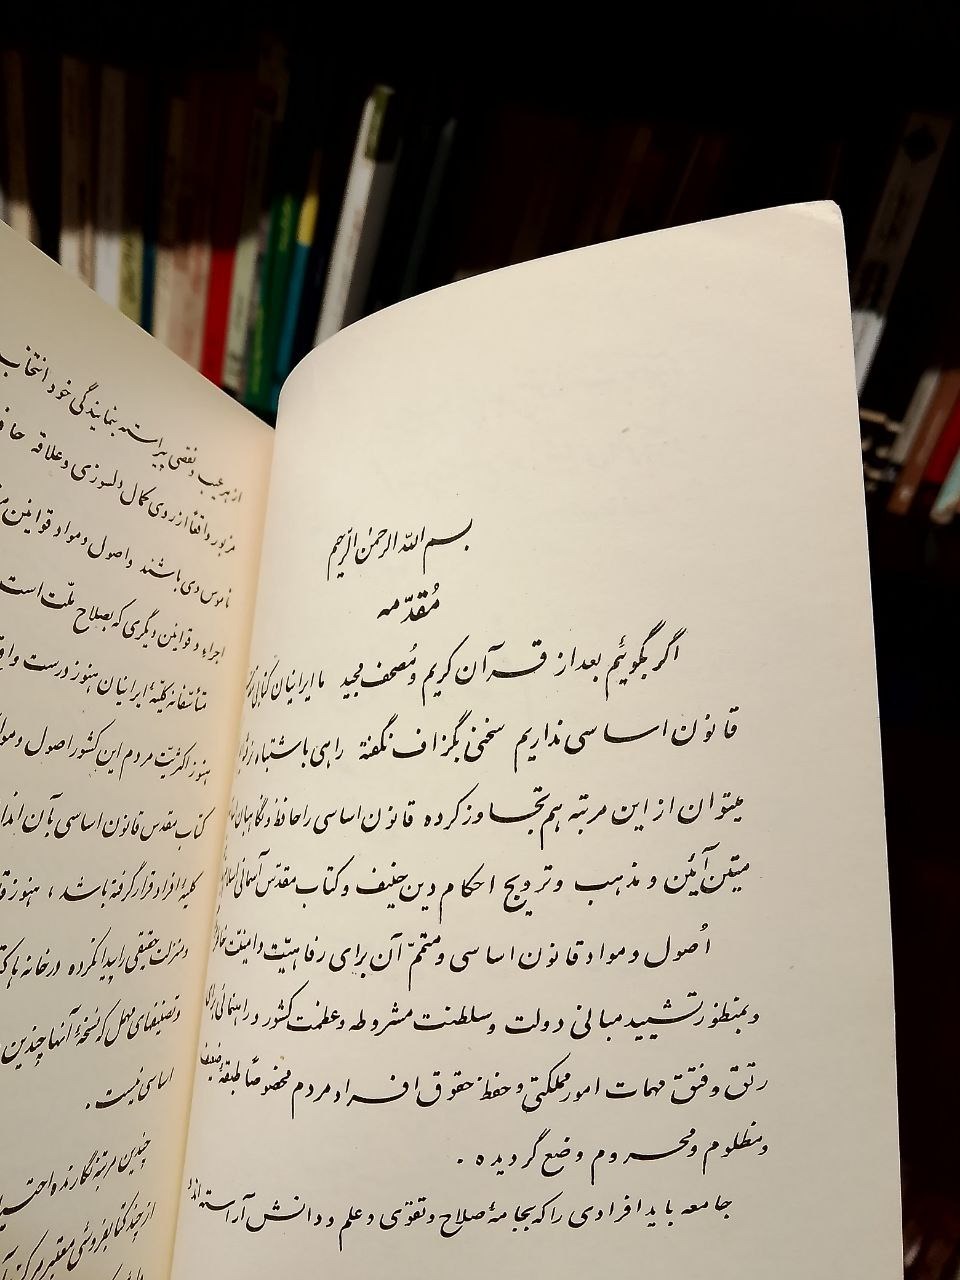 بسم الله الرحمن الرحیم
مُقدّمه
اگر بگوئیم بعد از قرآن کریم و مُصحف مجید ما ایرانیان کتابی
قانون اساسی نداریم سخنی بگزاف نگفته راهی باشتباه
میتوان از این مرتبه هم تجاوز کرده قانون اساسی را حافظ و نگاهبان
متین آئین و مذهب و ترویج احکام دین حنیف و کتاب مقدّس آسمانی
اُصول و مواد قانون اساسی و متمّم آن برای رفاهیّت و امنیّت
و بمنظور تشیید مبانی دولت و سلطنت مشروطه و عظمت کشور و راهنمائی برای
رتق و فتق مهمات امور مملکتی و حفظ حقوق افراد مردم مخصوصاً طبقهٔ ضعیف
و مظلوم و محروم وضع گردیده .
جامعه باید افرادی را که بجامهٔ صلاح و تقوی و علم و دانش آراسته‌اند
از هر عیب و نقصی پیراسته بنمایندگی خود انتخاب
مزبور واقعاً از روی کمال دلسوزی و علاقه
ناموس وی باشند و اصول و مواد قوانین
اجراء و قوانین دیگری که بصلاح ملّت است
متأسّفانه کلیّهٔ ایرانیان هنوز درست
هنوز اکثریّت مردم این کشور اصول و مواد
کتاب مقدّس قانون اساسی بآن
کلیهٔ افراد قرار گرفته باشد ، هنوز
و منزلت حقیقی را پیدا نکرده در خانه ها
و تصنیفهای مهمل که نسخهٔ آنها چندین
اساسی نیست .
چندین مرتبه نگارنده
از چند کتابفروشی معتبر مرکز